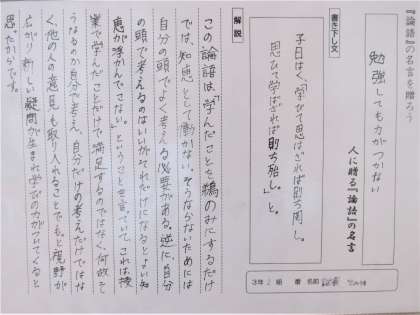 『論語』の名言を贈ろう
勉強しても力がつかない
人に贈る『論語』の名言
書き下し文
子曰はく、「学びて思はざれば則ち罔し。
思ひて学ばざれば則ち殆し。」と。
3年 2 組 番 名前
解説
この論語は、「学んだことを鵜のみにするだけ
では、知恵として働かない。そうならないためには
自分の頭でよく考える必要がある。逆に、自分
の頭で考えるのはいいがそれだけになるとよい知
恵が浮かんでこない。ということを言っていて、これは授
業で学んだことだけで満足するのではなく、何故そ
うなるのか自分で考え、自分だけの考えだけではな
く、他の人の意見も取り入れることでもっと視野が
広がり新しい疑問が生まれ学びの力がついてくると
思ったからです。